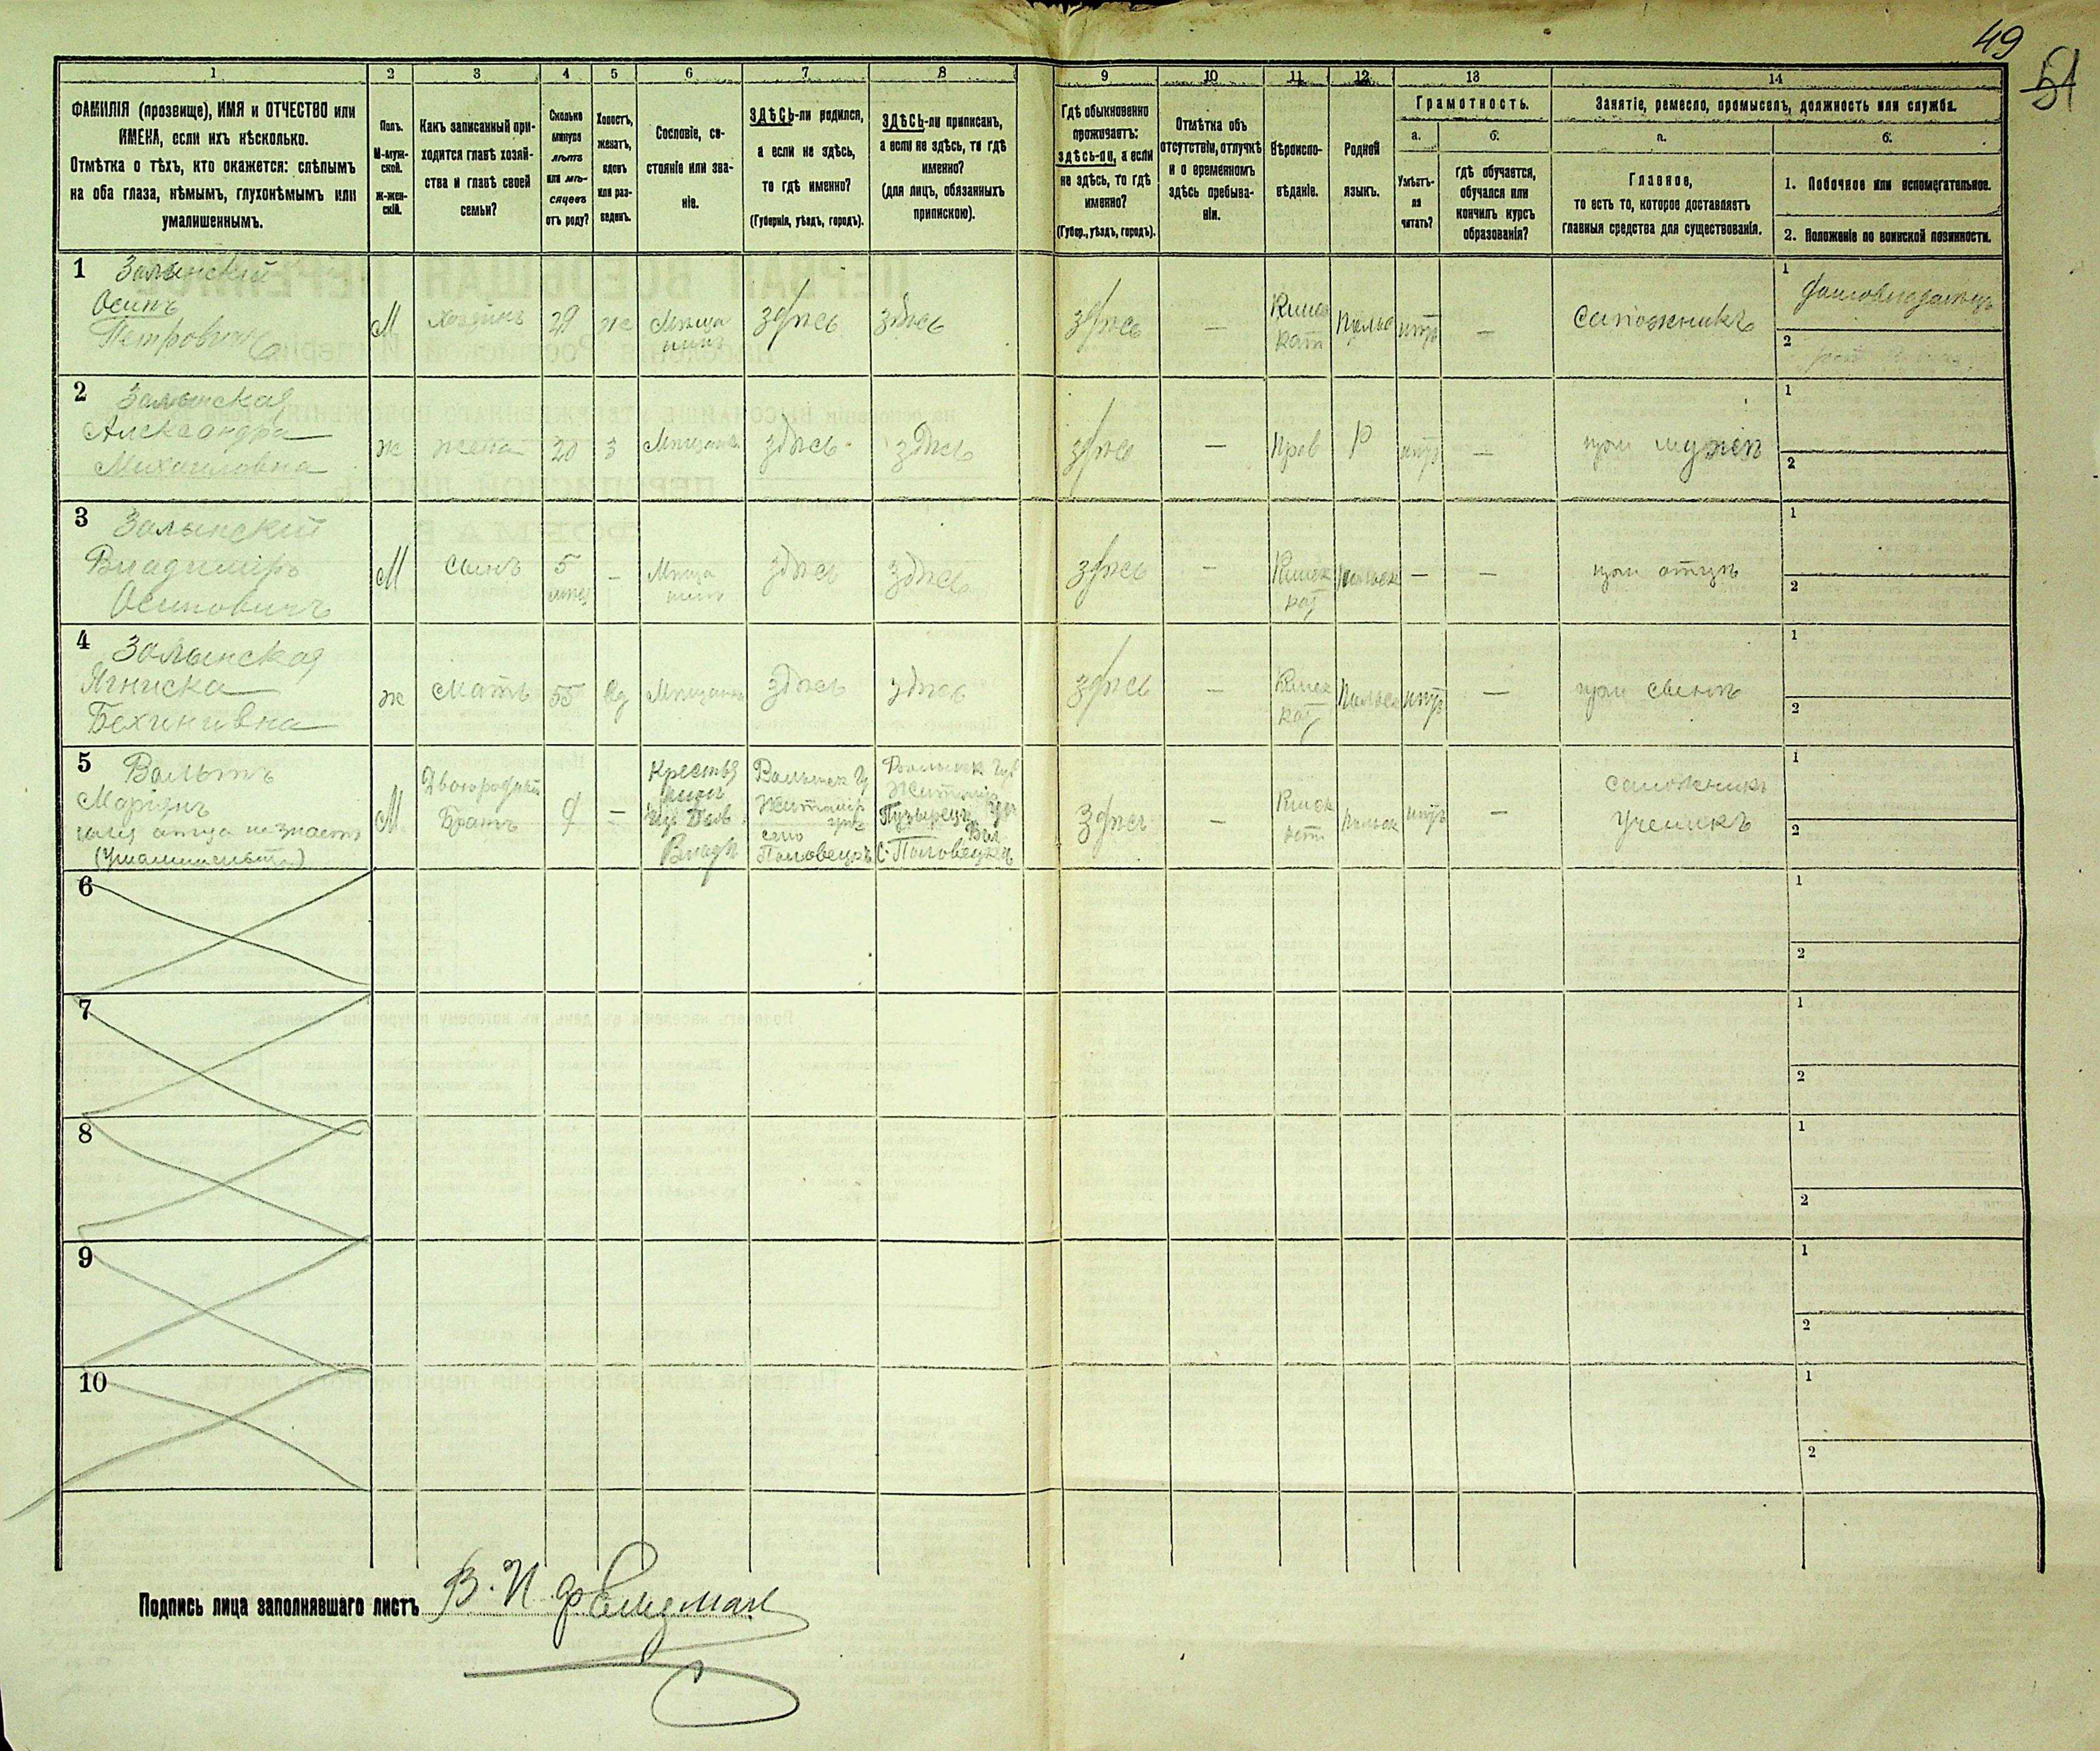 49
51
1 2 3 4 5 6 7 8 9 10 11 12 13 14
ФАМИЛІЯ (прозвище), ИМЯ и ОТЧЕСТВО или
ИМЕНА, если ихъ нѣсколько.
Отмѣтка о тѣхъ, кто окажется: слѣпымъ
на оба глаза, нѣмымъ, глухонѣмымъ или
умалишеннымъ.
Полъ.
М-муж-
ской.
Ж-жен-
скій.
Какъ записанный при-
ходится главѣ хозяй-
ства и главѣ своей
семьи?
Сколько
минуло
лѣтъ
или мѣ-
сяцевъ
отъ роду?
Холостъ,
женатъ,
вдовъ
или раз-
веденъ.
Сословіе, со-
стояніе или зва-
ніе.
ЗДѢСЬ-ли родился,
а если не здѣсь,
то гдѣ именно?
(Губернія, уѣздъ, городъ).
ЗДѢСЬ-ли приписанъ,
а если не здѣсь, то гдѣ
именно?
(для лицъ, обязанныхъ
припискою).
Гдѣ обыкновенно
проживаетъ:
здѣсь-ли, а если
не здѣсь, то гдѣ
именно?
(Губер., уѣздъ, городъ).
Отмѣтка объ
отсутствіи, отлучкѣ
и о временномъ
здѣсь пребыва-
ніи.
Вѣроиспо-
вѣданіе.
Родной
языкъ.
Грамотность.
а.
Умѣетъ-
ли
читать?
б.
гдѣ обучается,
обучался или
кончилъ курсъ
образованія?
Занятіе, ремесло, промыселъ, должность или служба.
а.
Главное,
то есть то, которое доставляетъ
главныя средства для существованія.
б.
1. Побочное или вспомогательное.
2. Положеніе по воинской повинности.
1
Залынскій
Осипъ
Петровичъ
М
хозяинъ
29
ж
Мѣща
нинъ
здѣсь
здѣсь
здѣсь
—
Римс
кат
Польс
нѣтъ
—
Сапожникъ
1
домовладѣлецъ
2
2
Залынская
Александра
Михаиловна
ж
жена
20
з
Мѣщанка
здѣсь
здѣсь
здѣсь
—
Прав
Р
нѣтъ
—
при мужѣ
1
2
3
Залынскій
Владиміръ
Осиповичъ
М
сынъ
5
—
Мѣща
нинъ
здѣсь
здѣсь
здѣсь
—
Римск
кат
Польск
—
—
при отцѣ
1
2
4
Залынская
Ягниска
ж
мать
55
вд
Мѣщанка
здѣсь
здѣсь
здѣсь
—
Римск
кат
Польск
нѣтъ
—
при сынѣ
1
2
5
имя отца не знаетъ
М
Двоюродный
Братъ
—
Крестья
нинъ
Волынск Г
Житомір
село
Половецкъ
Волынск Губ
Житомір
Вол
С. Половецка
Здѣсь
—
Римск
Польск
нѣтъ
—
сапожникъ
ученикъ
1
2
6
1
2
7
1
2
8
1
2
9
1
2
10
1
2
Подпись лица заполнявшаго листъ